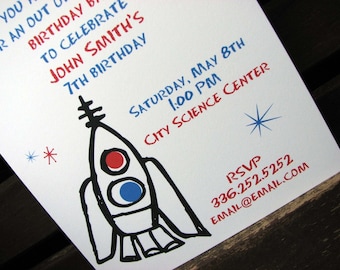 YOU
R AN OUT O
BIRTHDAY B
TO CELEBRATE
JOHN SMITH'S
7TH BIRTHDAY
SATURDAY, MAY 8TH
1:00 PM
CITY SCIENCE CENTER
RSVP
336.252.5252
EMAIL@EMAIL.COM